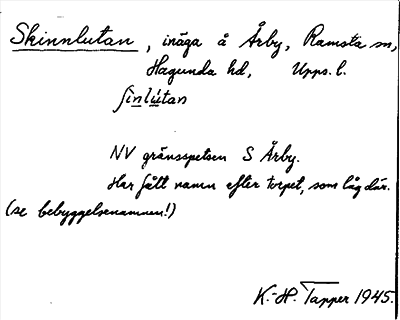 Skinnlutan, inäga å Årby, Ramsta sn,
Hagunda hd, Upps. l.
ʃinlùtan
NV gränsspetsen S Årby.
Har fått namn efter torpet, som låg där.
(se bebyggelsenamnen!)
K.-H. Tapper 1945.